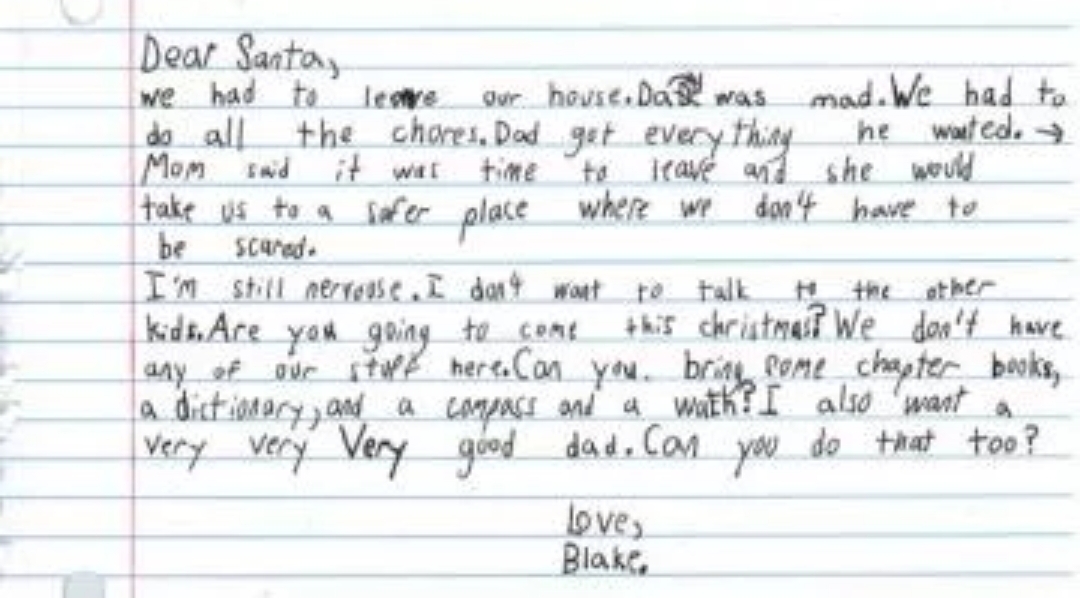 Dear Santa,
we had to leave our house. Dad was mad. We had to
do all the chores. Dad got every thing he wanted. →
Mom said it was time to leave and she would
take us to a safer place where we don't have to
be scared.
I'm still nervouse. I don't want to talk to the other
kids. Are you going to come this christmas? We don't have
any of our stuff here. Can you. bring some chapter books,
a dictionary, and a compass and a wath? I also want a
very very very good dad. Can you do that too?
Love,
Blake.